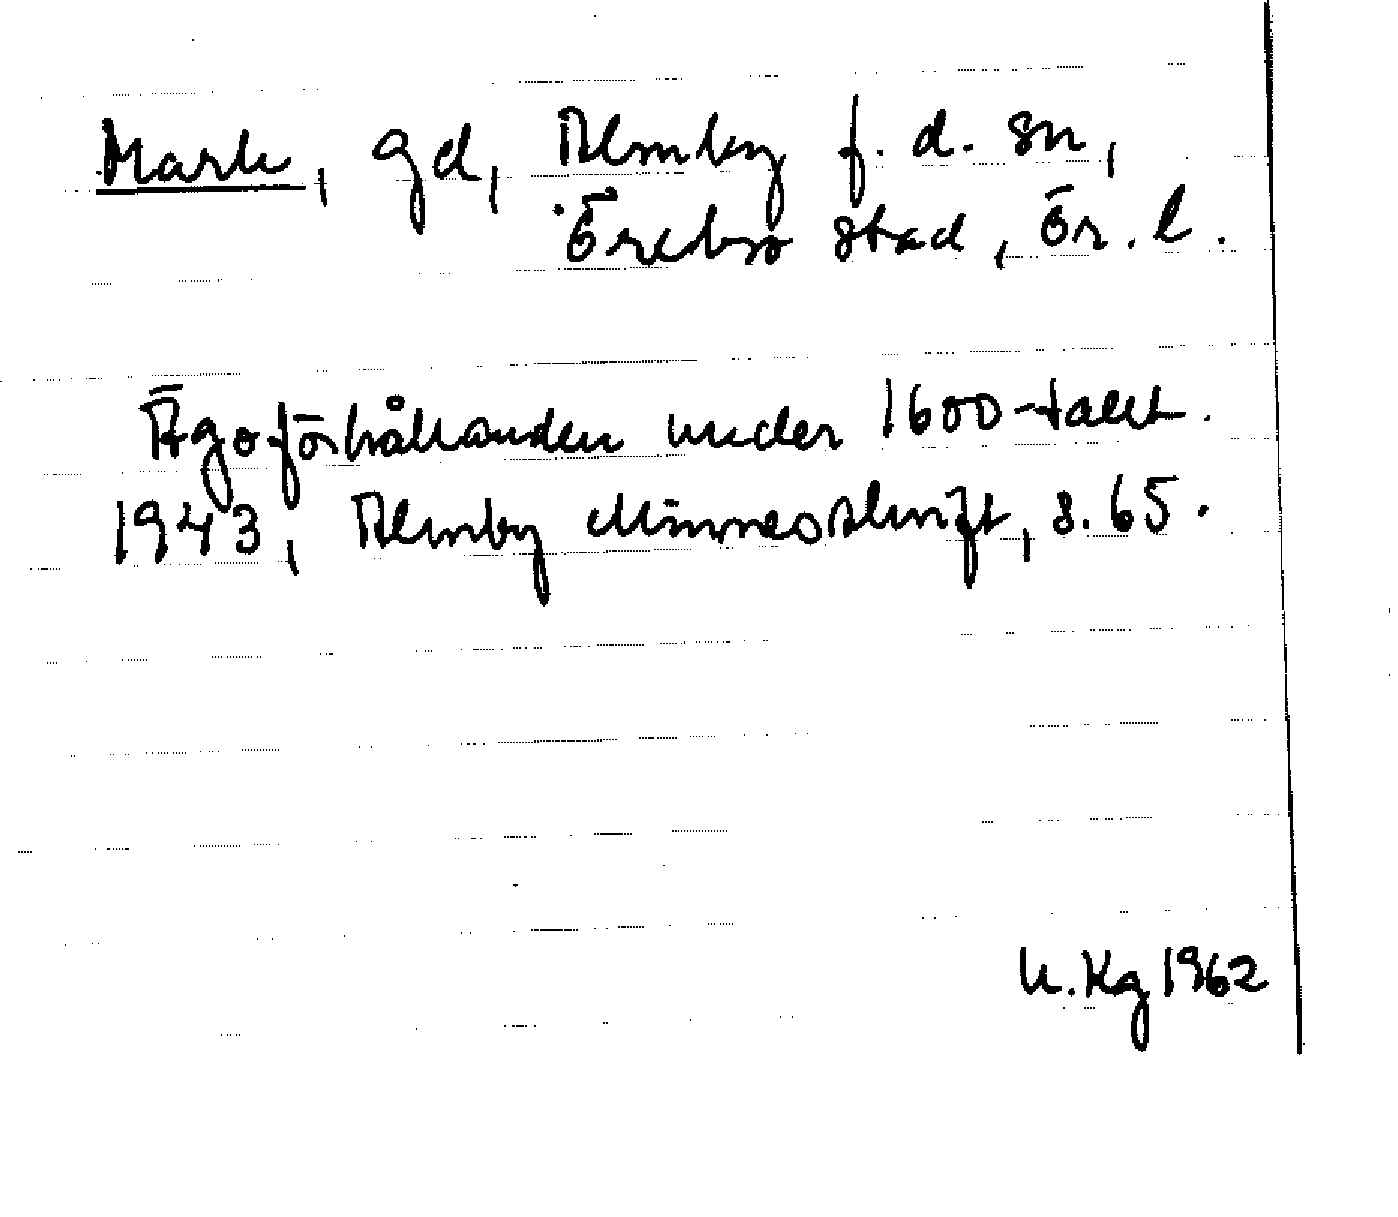 Mark, gd, Almby f. d. sn,
Örebro stad, Ör. l.
Ägoförhållanden under 1600-talet.
1943, Almby Minnesskrift, s. 65.
U. Kg 1962